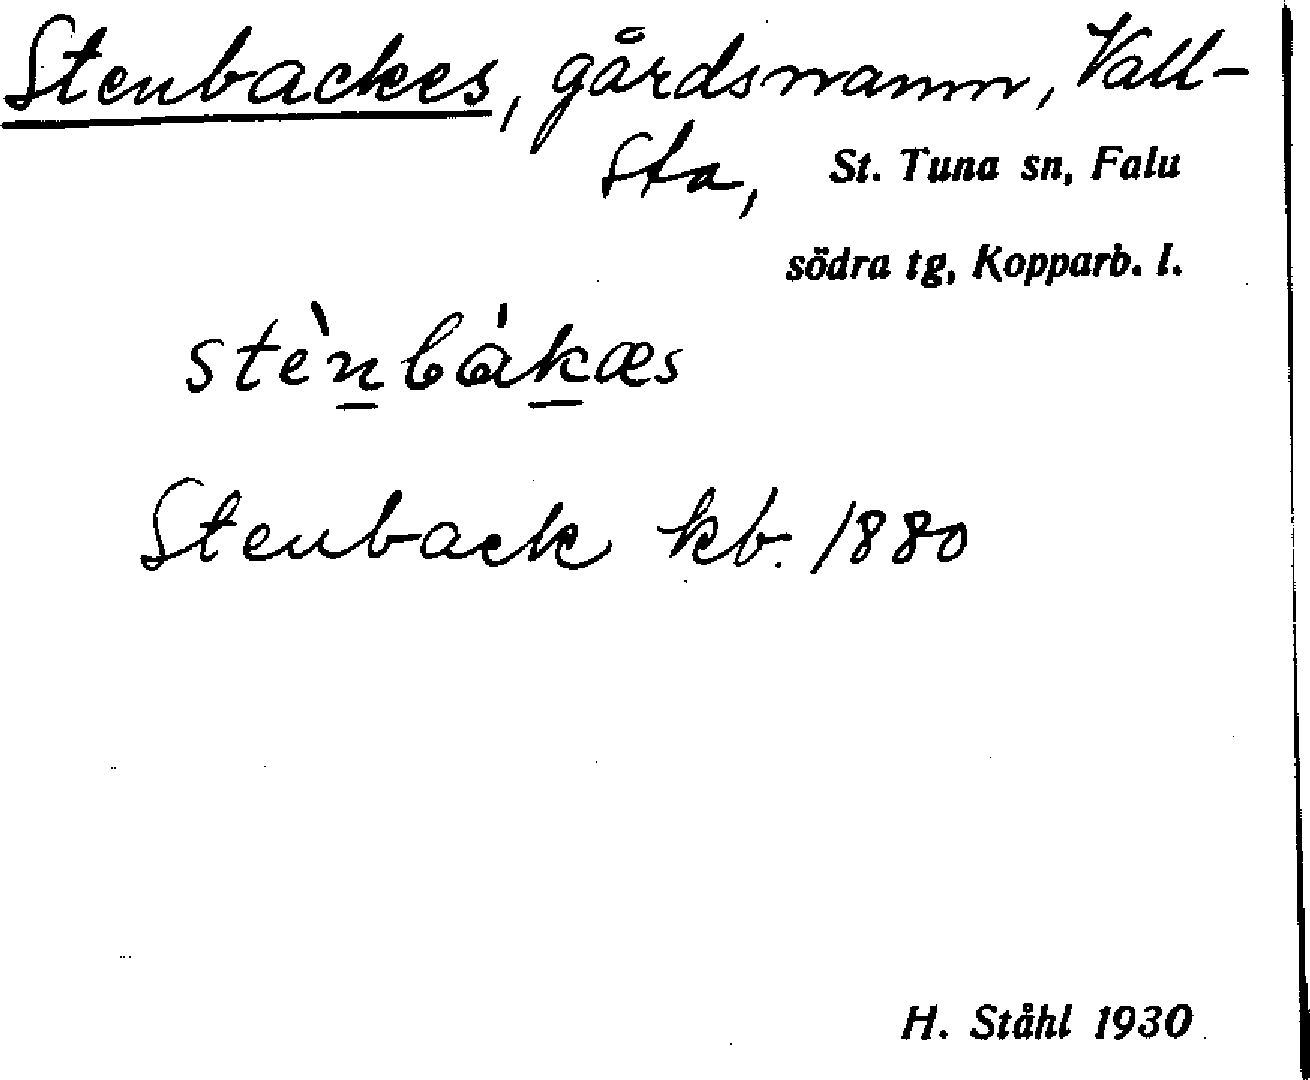 Stenbackes, gårdsnamn, Vall-
sta, St. Tuna sn, Falu
södra tg, Kopparb. l.
stèn̲bák̲æs
Stenback kb. 1880
H. Ståhl 1930